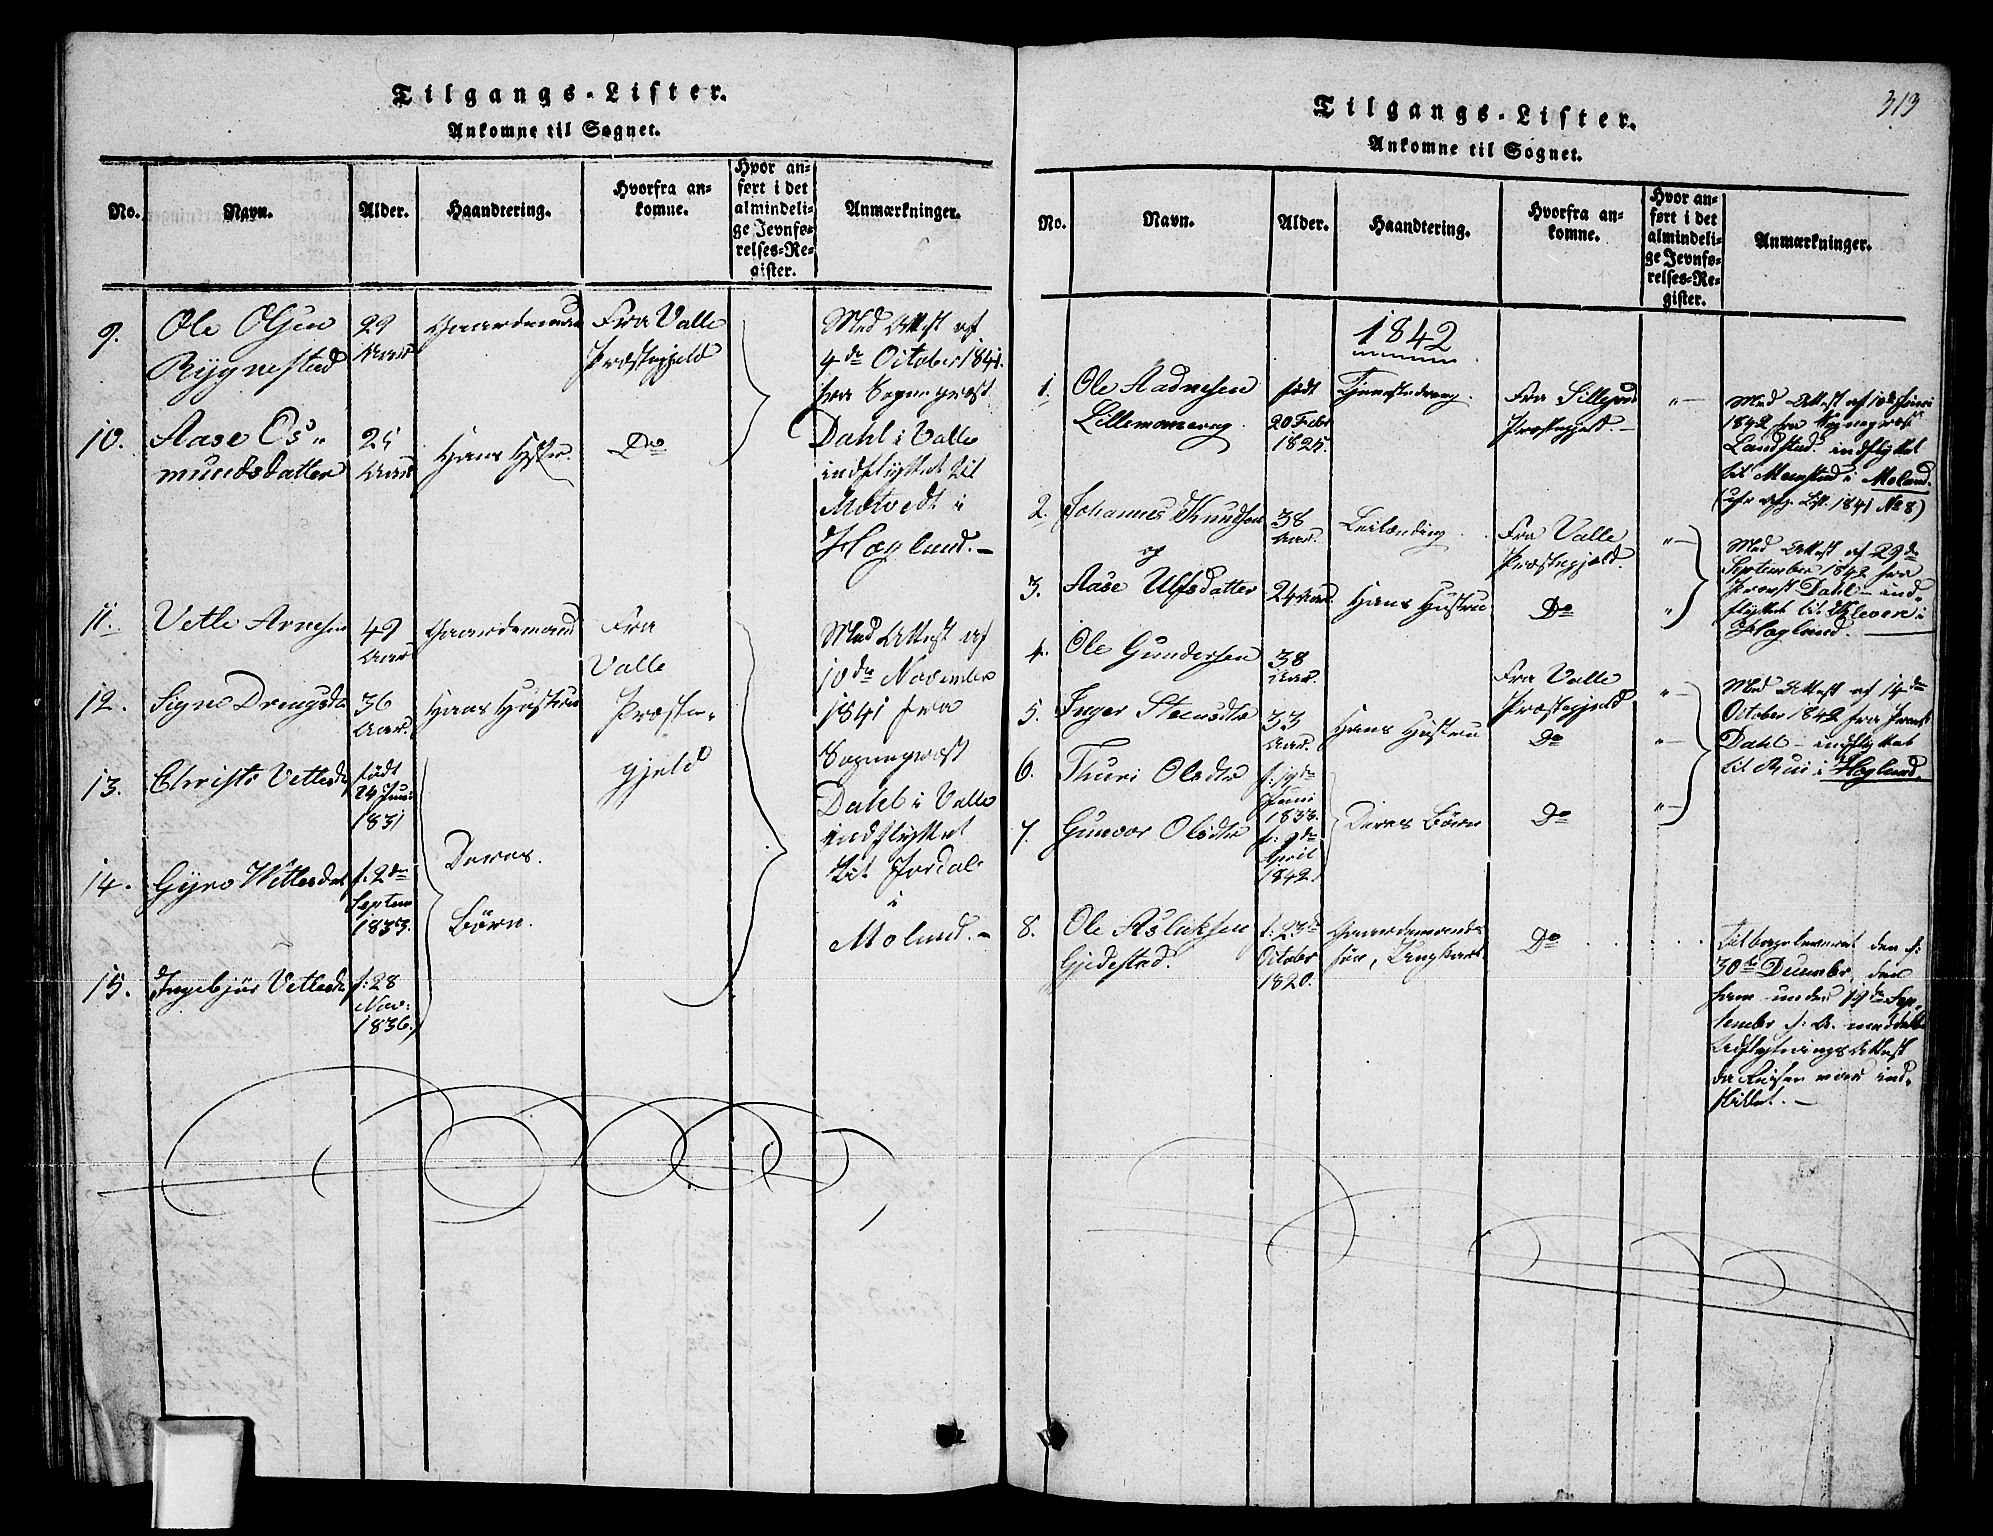 Tilgangs-Lister.
Ankomne til Sognet.
No. Navn. Alder. Haandtering. Hvorfra ankomne. Hvor anført i det almindelige Jevnførelses-Register. Anmærkninger.
9. Ole Olsen Rygnestad 29 Aar Gaardemand Fra Valle Præstegjeld
Med Attest af
4de October 1841
fra Sognepræst
Dahl i Valle
indflyttet til
Motvedt i
Hogland.-
10. Aase Os-
mundsdatter 25 Aar Hans Hstr. Do
11. Vetle Arnesen 49 Aar Gaardemand Fra Valle Præste-
gjeld
Med Attest af
10de November
1841 fra
Sognepræst
Dahl i Valle
indflyttet
til
i
Moland.-
12. Signe Drengsdr 36 Aar. Hans Hustru
13. Christi Vetlesdr født 24 Juni 1831
Deres
Børn.
14. Gyro Vetlesdat f. 2den Septem 1833.
15. Ingebjør Vetlesdr f. 28 Nov. 1836.
313
Tilgangs-Lister.
Ankomne til Sognet.
No. Navn. Alder. Haandtering. Hvorfra ankomne. Hvor anført i det almindelige Jevnførelses-Register. Anmærkninger.
1842
1. Ole Aadnesen født Tjenestedreng. Fra Sillejord
20 Febr
1825. Præstegjeld.-
Med Attest af 10de Juni
1842 fra Sognepræst
Landstad indflyttet
til Moenstad i Moland.
1841 No 8)
2. Johannes Knudsen 38 Aar. Leilænding Fra Valle
og Præstegjeld.
3. Aase Ulfsdatter 24 Aar. Hans Hustru Do
Med Attest af 29de
September 1842 fra
Provst Dahl - ind-
flyttet til Kleven i
Hogland.
4. Ole Gundersen 38 Aar. Fra Valle
Præstegjeld.
5. Inger Steensdtr 33 Aar. Hans Hustru Do
Med Attest af 14de
October 1842 fra Provst
Dahl - indflyttet
til Rui i Hogland.
6. Thuri Olsdtr f: 19de Juni 1833.
7. Gunvor Olsdtr f. 9de April 1842. Deres Børn Do
8. Ole Aslaksen f. 23de Gaardemands Do
Gjedestad. October søn, Ungkarl
1820.
Tilbageleveret den f:
30te December den
ham under 19de Sep-
tember f: A. meddelte
Udflytnings Attest
da Reisen var ind-
stillet.-